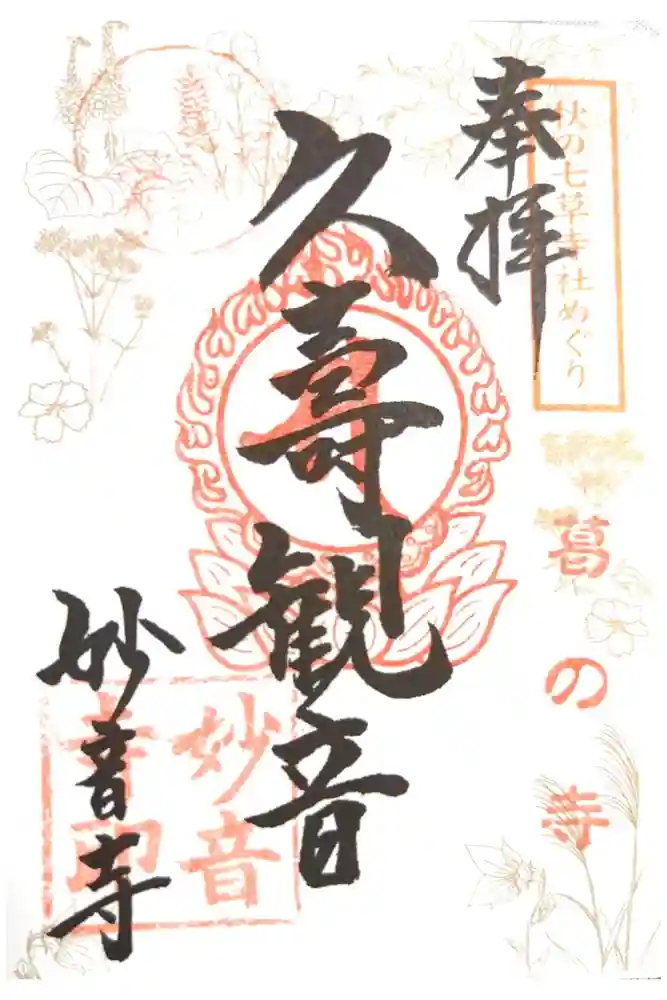 奉拝
秋の七草寺社めぐり
葛の寺
久寿観音
妙音寺
妙音
寺印